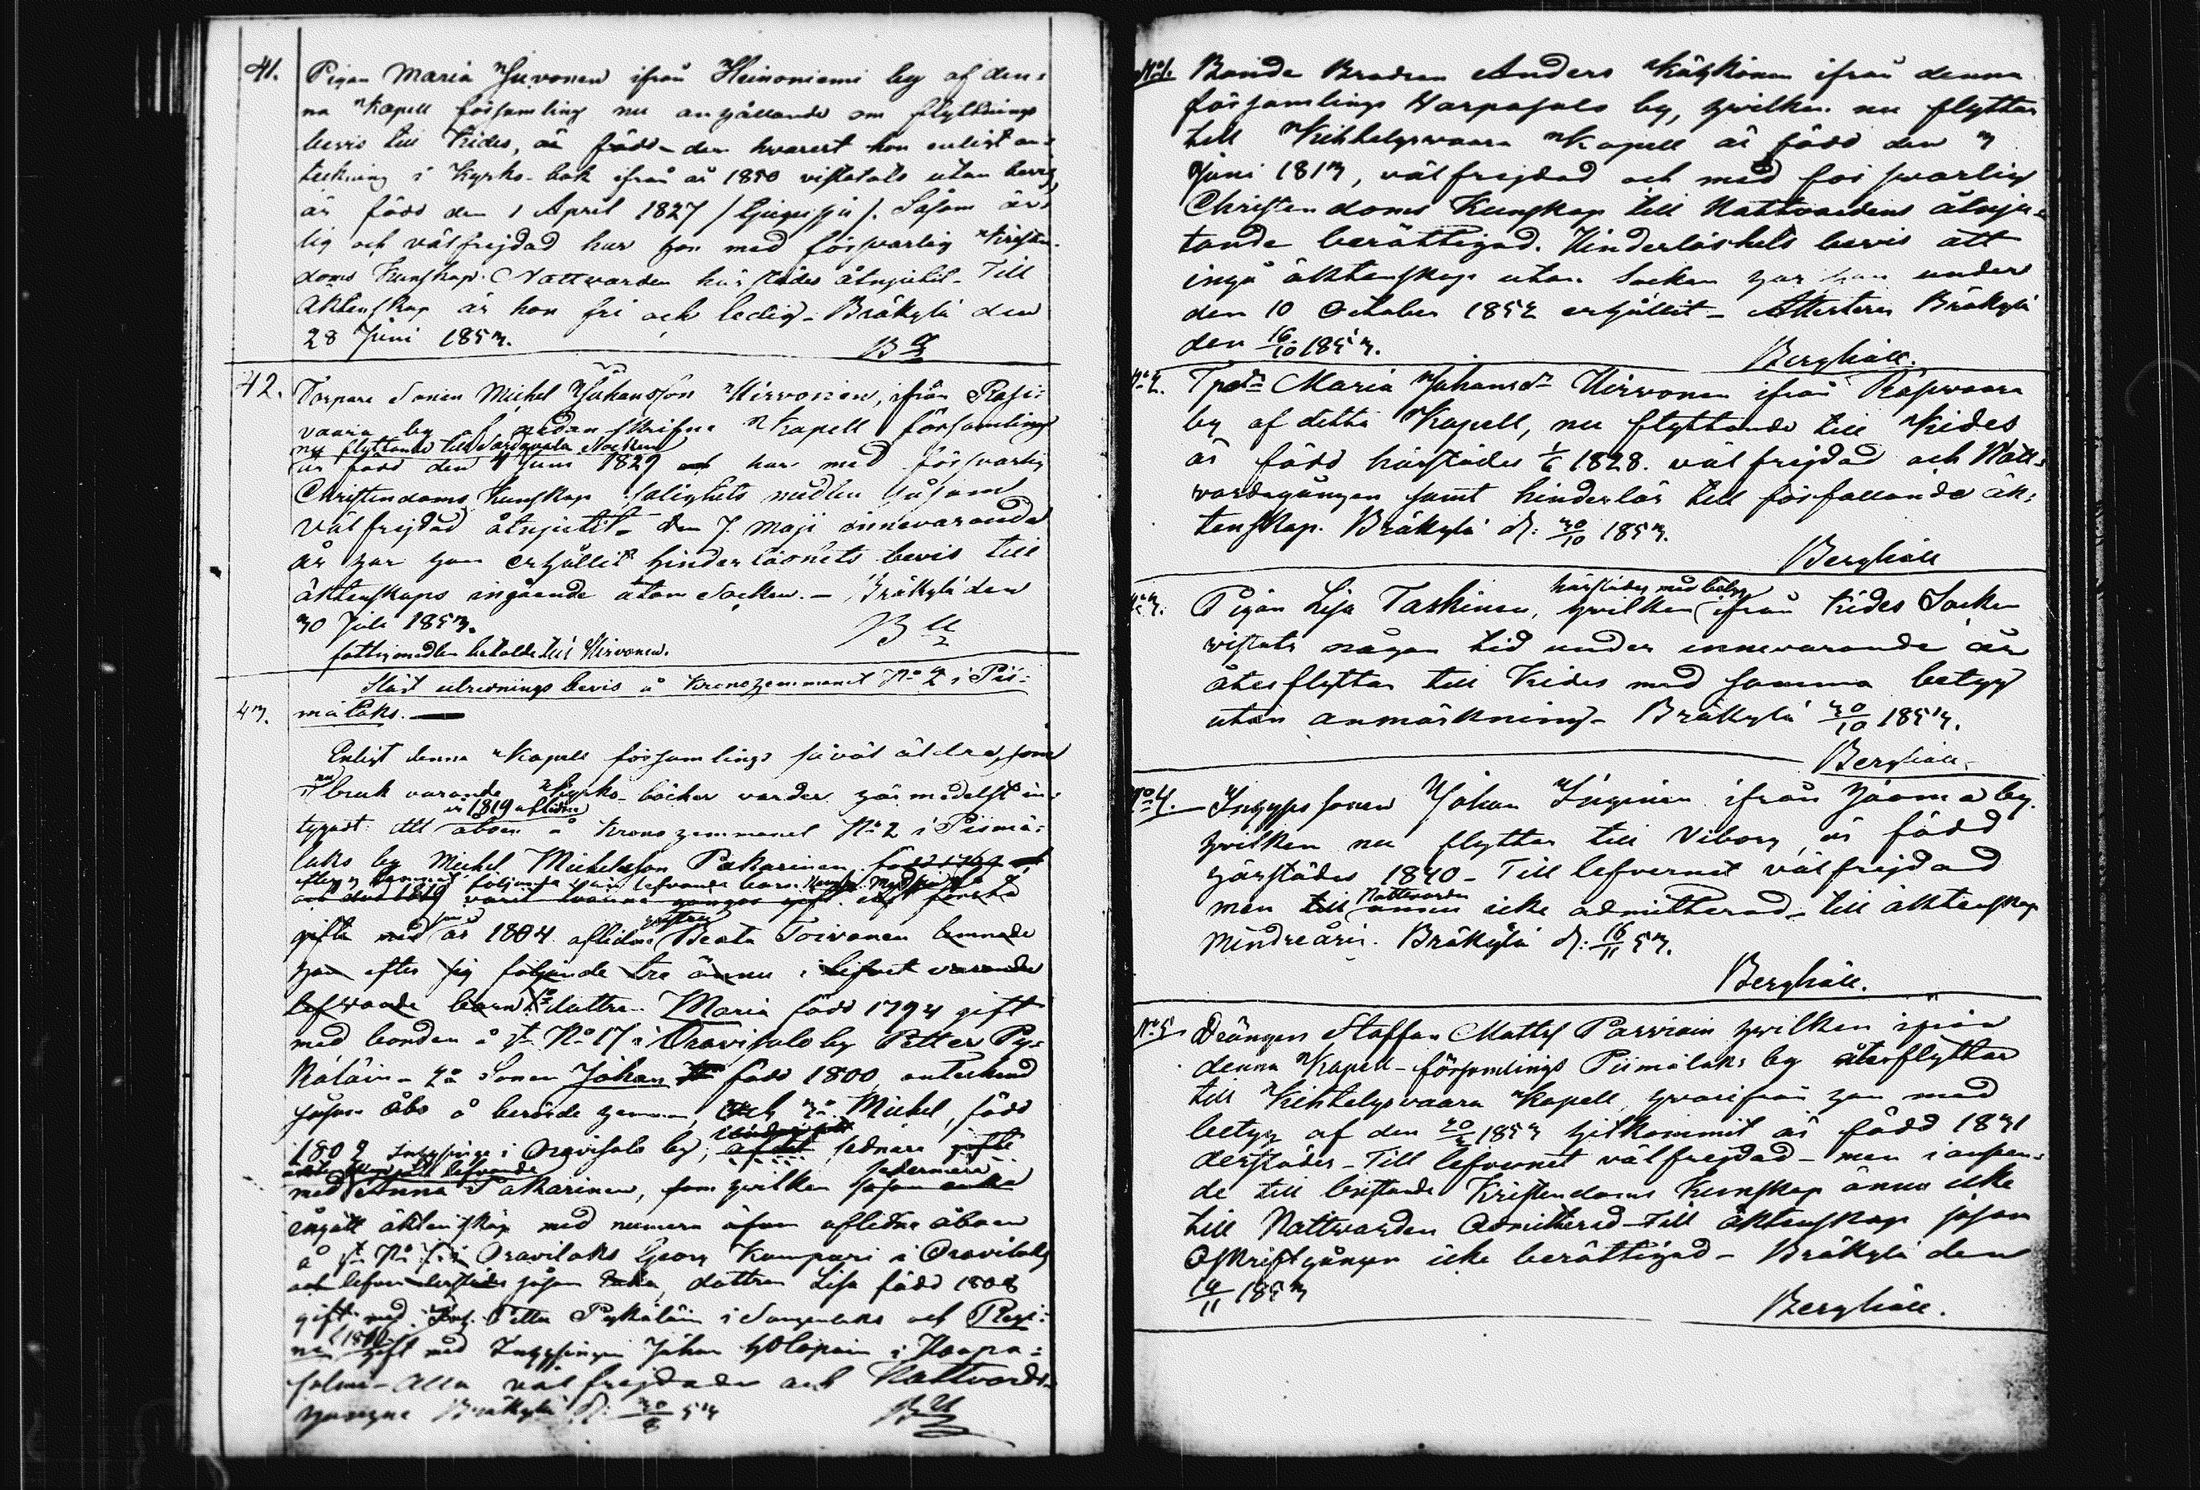 41. Pigan Maria Juvonen ifrån Heinoniemi by af den-
na Kapell församling nu anhållande om flyttnings
bevis till Kides, är född den hvarest hon enligt an-
teckning i Kyrko-bok ifrån år 1850 vistatats utan bevis
är född den 1 April 1827 Såsom är-
lig och välfrejdad har hon med försvarlig Kristen-
doms Kunskap Nattvarden härstädes åtnjutit. Till
äktenskap är hon fri och ledig. Bräkylä den
28 Juni 1853.
42. Torpare Sonen Michel Johansson Hirvonen, ifrån Rasi-
vaara by af Kapell församling
nu flyttande till Sordavala Socken
är född den 4 Juni 1829 och har med försvarlig
Christendoms Kunskap salighets medlen såsom
välfrejdad åtnjutit. den 7. Maji innevarande
år har han erhållit hinderlöshets bevis till
äktenskaps ingående utom Socken. – Bräkylä den
30 Juli 1853.
fattigmedlen betalde till Hirvonen.
utredningsbevis å Kronohemmanet No 2 i Pii-
43. mälaks. —
Enligt denna Kapell församlings såväl äldre, som
nu i bruk varande Kyrko-böcker varder här medelst in-
i 1819 aflidne
tygadt: att åboen å Krono hemmanet No 2 i Piimä-
laks by Michel Michelsson Pakarinen född
gifta med år 1804 aflidne hustru Beata Toivonen lemnade
han efter sig följande tre ännu i lifvet varande
lefvande barn: dottren Maria född 1794 gift
med bonden å No 17 i Oravisalo by Petter Py-
käläin – 2o Sonen Johan född 1800, antecknad
såsom åbo å berörde hemman, och 3o Michel, född
1802 Inhysinge i Oravisalo by, sednare gifte
med Anna Pakarinen, som hvilken
ingått äktenskap med numera äfven aflidne åboen
å No i Oravilaks Georg i Oravilaks
och lefver derstädes såsom enka, dottren Lisa född 1808
gift med Petter Pykäläin i och Regi-
na gift med Inhysingen Johan Holopain i Haapa-
salmi – Alla välfrejdade och Nattvards-
gångne Bräkylä d: 30/8 53
No 1. Bonde Brodren Anders Kätkönen ifrån denna
församlings Varpasalo by, hvilken nu flyttar
till Kihtelysvaara Kapell är född den 3
Juni 1813, välfrejdad och med försvarlig
Christendoms Kunskap till Nattvardens åtnju-
tande berättigad. Hinderlöshets bevis att
ingå äktenskap utom Socken har han under
den 10 October 1852 erhållit – Attesterar Bräkylä
den 16/10 1853.
Berghäll.
No 2. Maria Johansdr Hirvonen ifrån Rasivaara
by af detta Kapell, nu flyttande till Kides
är född härstädes 1/6 1828. välfrejdad och Natt-
vardsgången samt hinderlös till förfallande äk-
tenskap. Bräkylä d: 30/10 1853.
Berghäll
härstädes med betyg
No 3. Pigan Lisa Taskinen, hvilken ifrån Kides Socken
vistats någon tid under innevarande år
återflyttar till Kides med samma betyg
utan anmärkning – Bräkylä 30/10 1853.
Berghäll.
No 4. Inhyses sonen Johan Inginen ifrån Jaama by.
hvilken nu flyttar till Viborg är född
härstädes 1840 – Till lefvernet välfrejdad
Nattvarden
men till ännu icke admitterad – till äktenskap
Mindreårig. Bräkylä d: 16/11 53.
Berghäll.
No 5 Drängen Staffan Mattss Parviain hvilken ifrån
denna Kapell-församlings Piimälaks by återflyttar
till Kihtelysvaara Kapell hvarifrån han med
betyg af den 20/2 1853 hitkommit är född 1831
derstädes – Till lefvernet välfrejdad – men i anseen-
de till bristande Kristendoms Kunskap ännu icke
till Nattvarden Admitterad – till äktenskap såsom
Oskriftgången icke berättigad – Bräkylä den
19/11 1853
Berghäll.